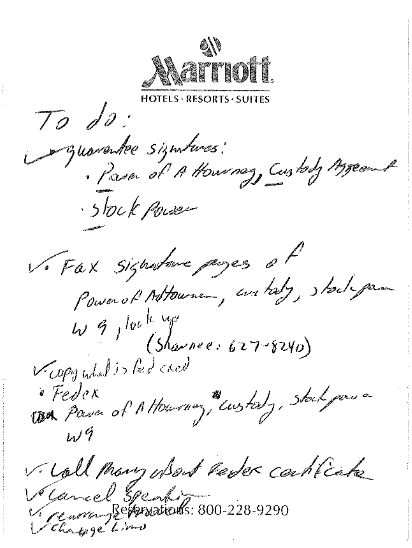 Marriott
HOTELS · RESORTS · SUITES
To do:
✓ guarantee signatures:
· Power of Attourney, Custody Aggeement
· Stock Power
✓· Fax signature pages of
Power of Attourney, custody, stock power
W9, lock up
(Shawnee: 627-8240)
✓· copy what is fed exed
· Fedex
Power of Attourney, custody, stock power
W9
✓· Call Many about Fedex certificate
✓· Cancel
✓· rearrange
Reservations: 800-228-9290
✓ change Limo